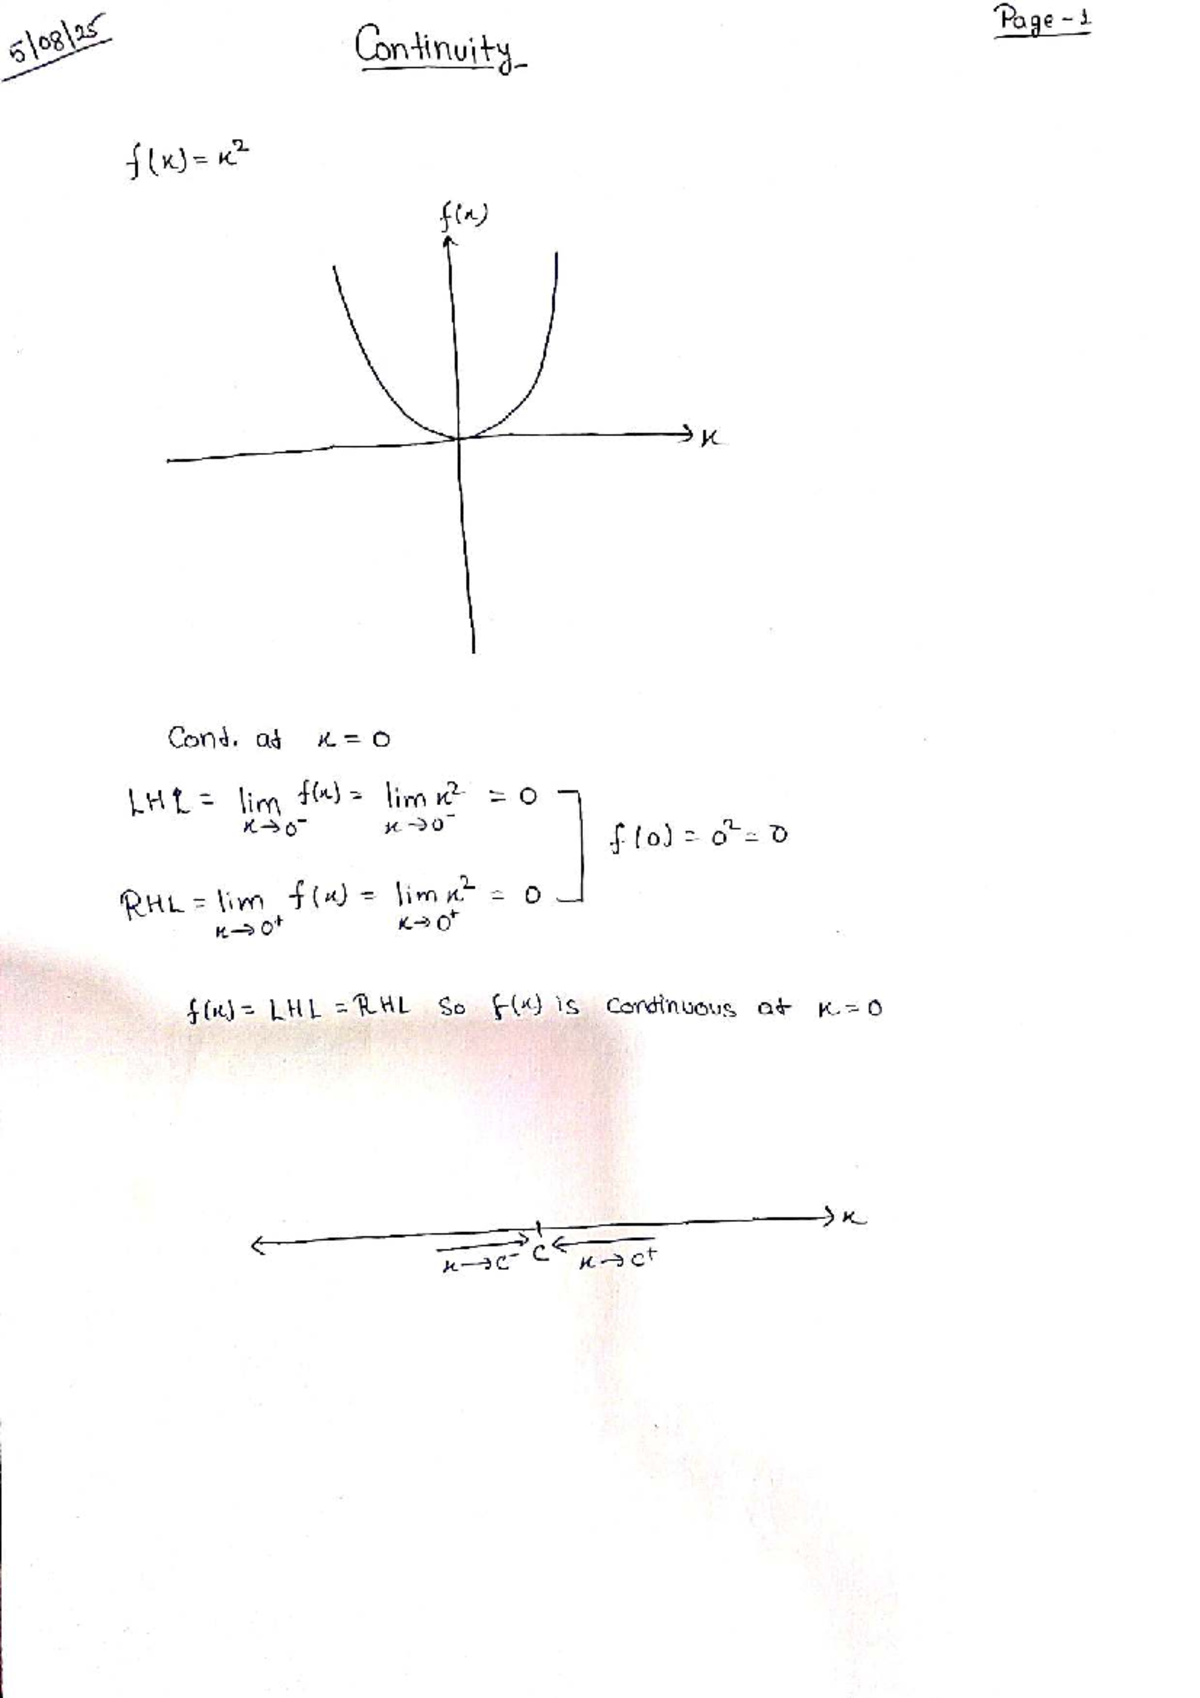 5/08/25
Continuity
Page-1
f(x) = x²
f(x)
x
Cont. at x = 0
LHL = lim f(x) = lim x² = 0
x→0⁻ x→0⁻
f(0) = 0² = 0
RHL = lim f(x) = lim x² = 0
x→0⁺ x→0⁺
f(x) = LHL = RHL So f(x) is continuous at x = 0
x
x→c⁻ c x→c⁺